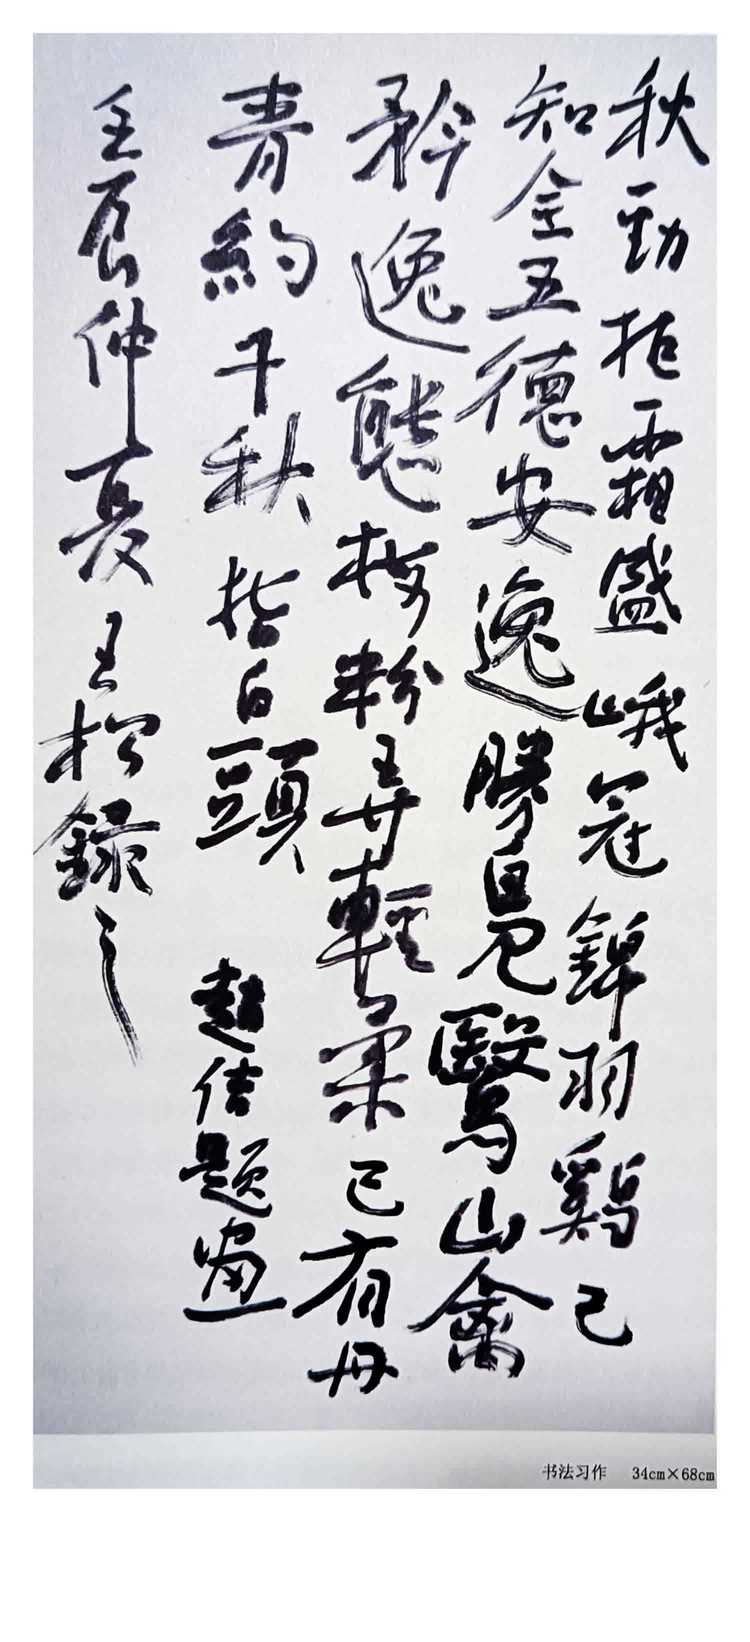 秋勁拒霜盛峨冠錦羽鷄已
知全五德安逸勝鳧鷖山禽
矜逸態梅粉弄輕柔已有丹
青約千秋指白頭 趙佶题畫
壬辰仲夏王松録之
书法习作 34cm×68cm